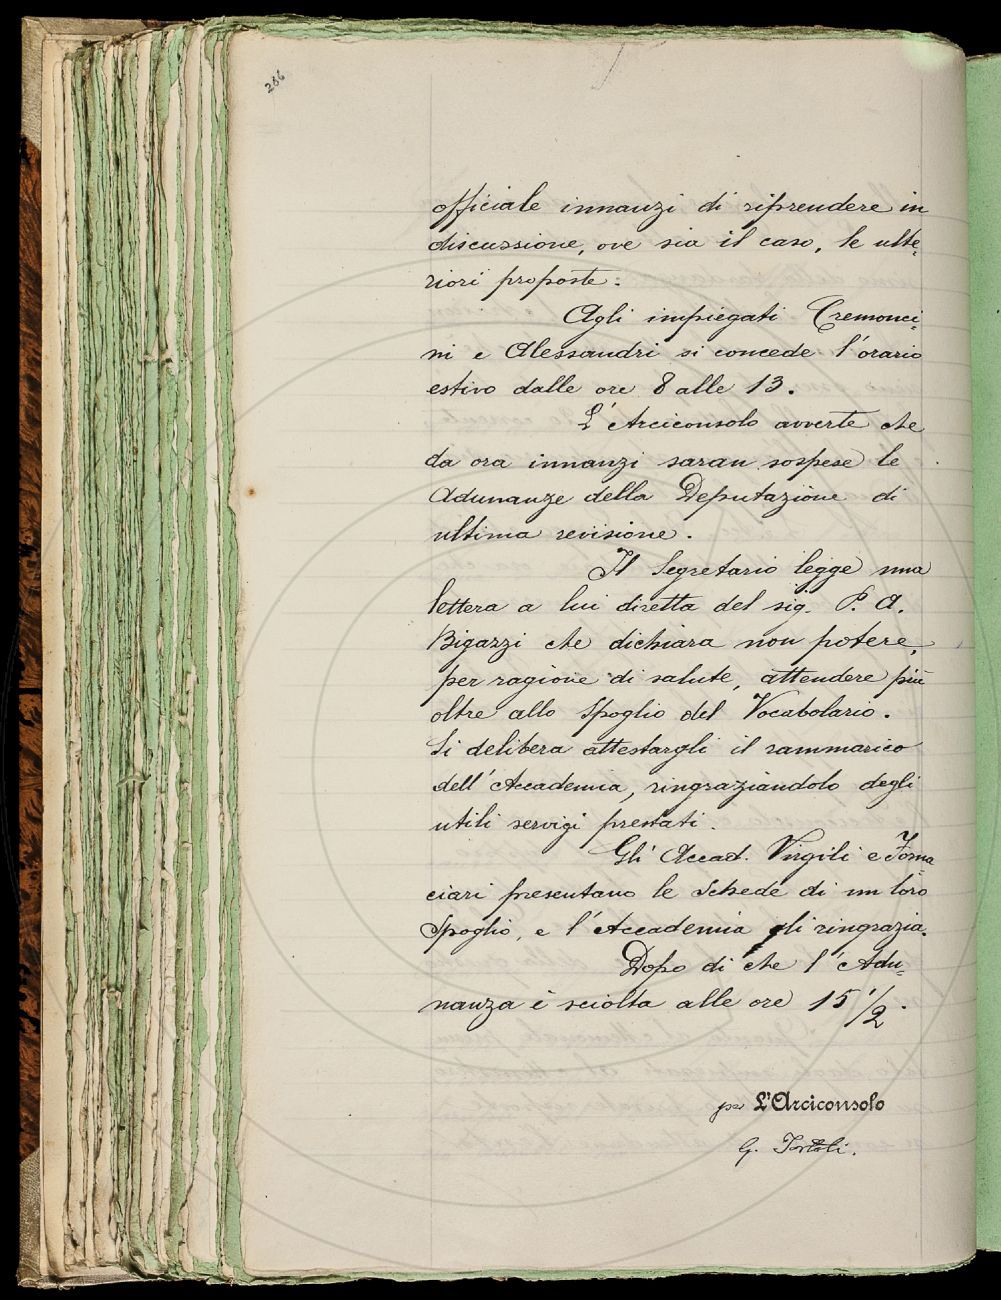 286
officiale innanzi di riprendere in
discussione, ove sia il caso, le ulte=
riori proposte.
Agli impiegati Cremonci=
ni e Alessandri si concede l'orario
estivo dalle ore 8 alle 13.
L'Arciconsolo avverte che
da ora innanzi saran sospese le
Adunanze della Deputazione di
ultima revisione.
Il Segretario legge una
lettera a lui diretta del sig. P. A.
Bigazzi che dichiara non potere,
per ragione di salute, attendere più
oltre allo Spoglio del Vocabolario.
Si delibera attestargli il rammarico
dell'Accademia, ringraziandolo degli
utili servigi prestati.
Gli Accad. Virgili e Forna=
ciari presentano le Schede di un loro
Spoglio, e l'Accademia gli ringrazia.
Dopo di che l'Adu=
nanza è sciolta alle ore 15 1/2.
per L'Arciconsolo
G. Tortoli.